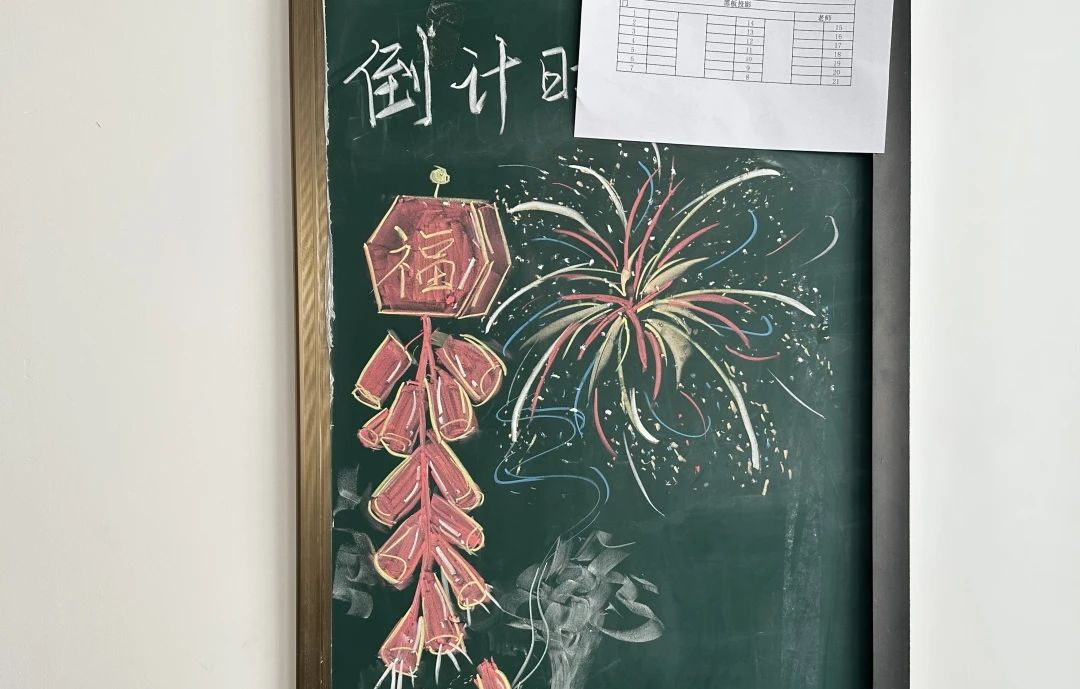 倒计时
黑板投影
门
老师
1 14 15
2 13 16
3 12 17
4 11 18
5 10 19
6 9 20
7 8 21
福